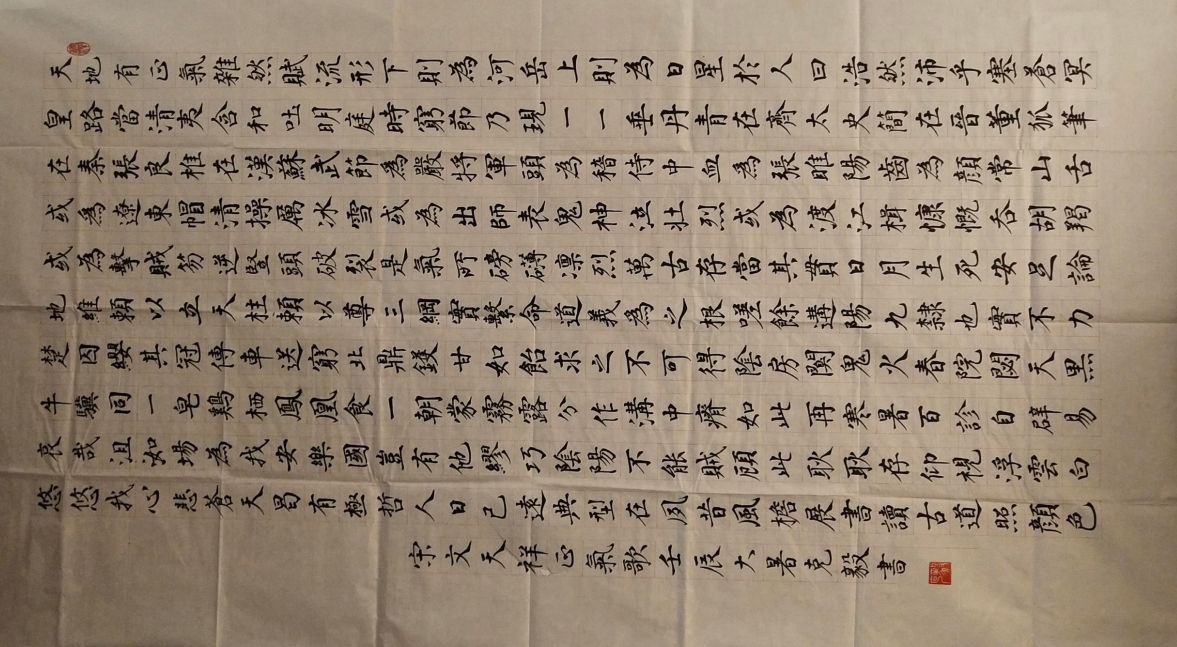 天地有正氣雜然賦流形下則為河岳上則為日星於人曰浩然沛乎塞蒼冥
皇路當清夷含和吐明庭時窮節乃現一一垂丹青在齊太史簡在晉董狐筆
在秦張良椎在漢蘇武節為嚴將軍頭為稽侍中血為張睢陽齒為顏常山舌
或為遼東帽清操厲冰雪或為出師表鬼神泣壯烈或為渡江楫慷慨吞胡羯
或為擊賊笏逆豎頭破裂是氣所磅礴凛烈萬古存當其貫日月生死安足論
地維賴以立天柱賴以尊三綱實繫命道義為之根嗟餘遘陽九隸也實不力
楚囚纓其冠傳車送窮北鼎鑊甘如飴求之不可得陰房闃鬼火春院閟天黑
牛驥同一皂鷄栖鳳凰食一朝蒙霧露分作溝中瘠如此再寒暑百診自辟易
哀哉沮洳場為我安樂國豈有他繆巧陰陽不能賊顧此耿耿存仰視浮雲白
悠悠我心悲蒼天曷有極哲人日已遠典型在夙昔風檐展書讀古道照顏色
宋文天祥正氣歌壬辰大暑克毅書